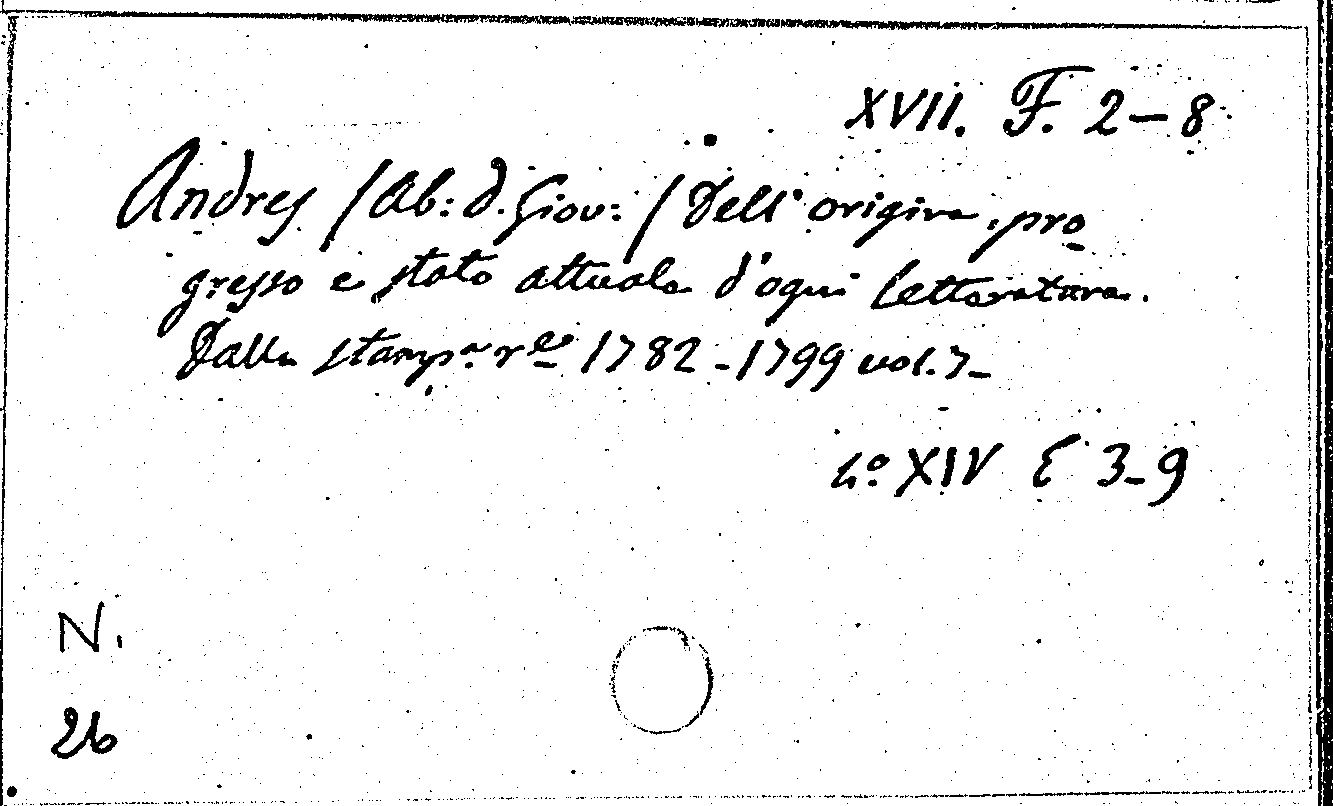 XVII. F. 2-8
Andres /Ab: d. Giov: / Dell' origine, pro
gresso e stato attuale d'ogni letteratura.
Dalla stamp.a r.le 1782-1799 vol. 7-
4.o XIV E 3-9
N.
26